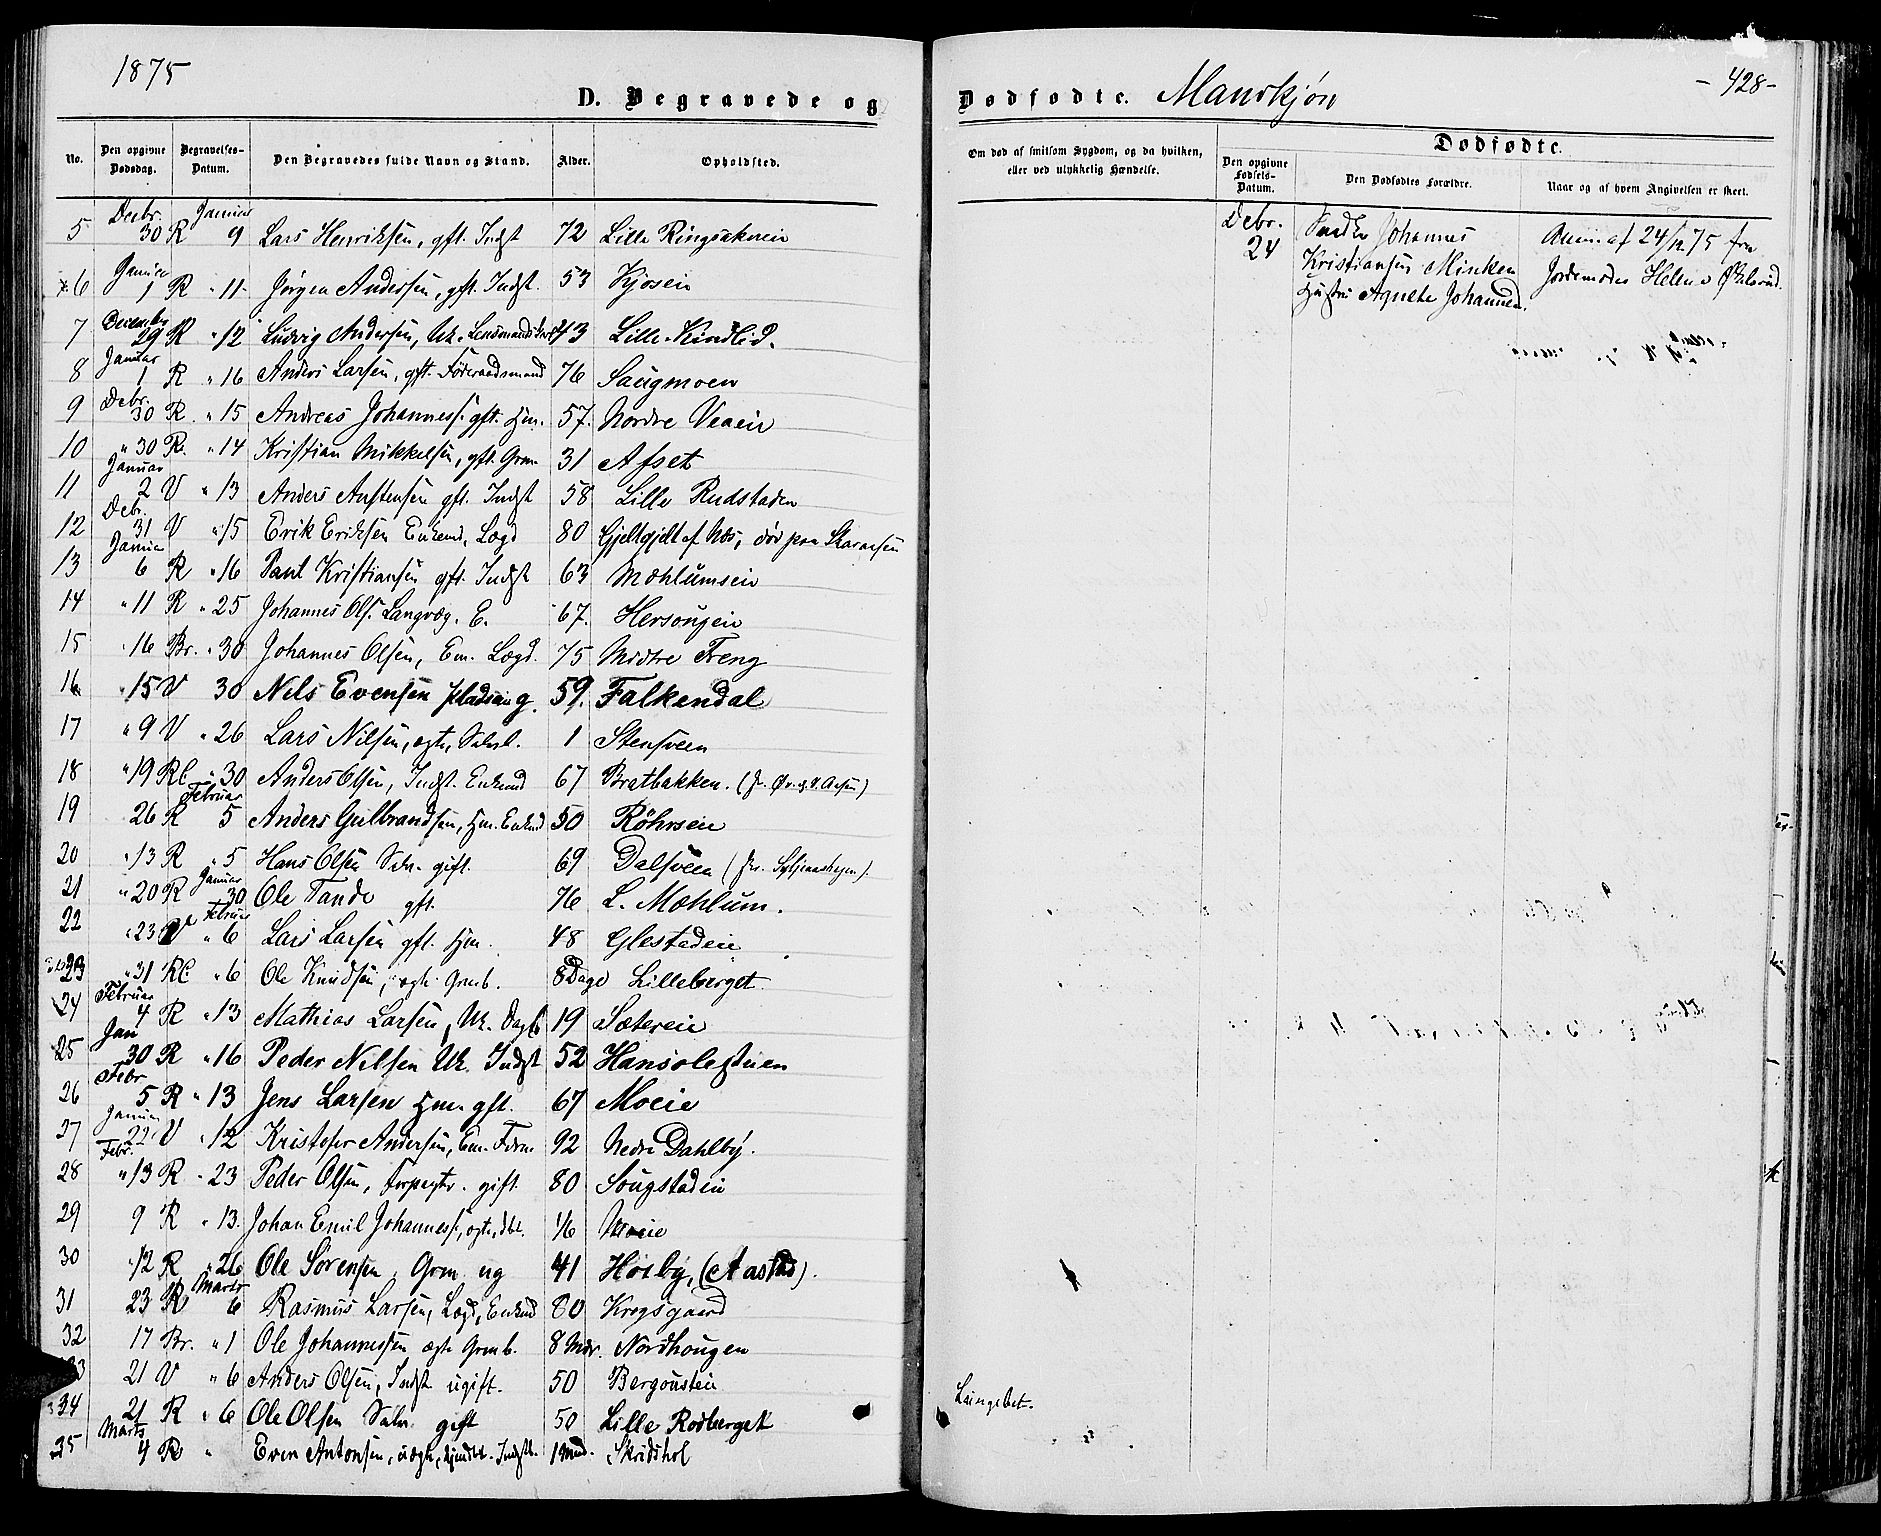 1875
D. Begravede og
No. Den opgivne Dødsdag. Begravelses-Datum. Den Begravedes fulde Navn og Stand. Alder. Opholdsted.
5 Decbr. 30 R Januar 9 Lars Henriksen, gft. Indst 72 Lille Ringsakereie
6 Januar 1 R " 11 Jørgen Andersen, gft. Indst. 53 Kjoseie
7 December 29 R " 12 Ludvig Andersen, Uk. 43 Lille Kindlid.
8 Januar 1 R " 16 Anders Larsen, gft. Føderaadsmand 76 Saugmoen
9 Debr. 30 R " 15 Andreas Johanness. gft. Hm. 57. Nordre Veaeie
10 " 30 R. " 14 Kristian Mikkelsen, gft. Grm. 31 Afset
11 Januar 2 V " 13 Anders Austensen gft. Indst 58 Lille Rudstaden
12 Debr. 31 V " 15 Erik Eriksen Enkemd, Lægd 80
13 Januar 6 R " 16 Paul Kristiansen gft. Indst 63 Mæhlumseie
14 " 11 R " 25 Johannes Ols. Langvæg. E. 67.
15 " 16 Br. " 30 Johannes Olsen, Em. Lægd. 75 Midtre Freng
16 " 15 V 30 Nels Evensen Pladsm g. 59. Falkendal
17 " 9 V " 26 Lars Nilsen, ægte, Selvsb. 1 Stensveen
18 " 19 RC " 30 Anders Olsen, Indst. Enkemd 67 Bratbakken.
19 26 R Februar 5 Anders Gulbrandsen, Hm. Enkmd 50 Röhrseie
20 " 13 R " 5 Hans Olsen Selv. gift. 69 Dalsveen
21 " 20 R Januar 30 Ole Tande gft. 76 L. Mæhlum.
22 " 23 V Februar 6 Lars Larsen gft. Hm. 48 Glestadeie
23 " 31 RC " 6 Ole Knudsen, ægte Grmb. 8 Dage Lilleberget
24 Februar 4 R " 13 Mathias Larsen, Uk. 19 Sætereie
25 Jan 30 R " 16 Peder Nilsen Uk. Indst 52 Hansolestuen
26 Febr 5 R " 13 Jens Larsen Hm. gft. 67 Moeie
27 Januar 22 V " 12 Kristofer Andersen, Em. 92 Nedre Dahlby.
28 Febr. " 13 R " 23 Peder Olsen, Forpagter. gift. 80 Sougstadeie
29 9 R " 13. Johan Emil Johanness., ægte, 1/6 Moeie
30 " 12 R " 26 Ole Sørensen, Grm. ug 41 Høiby, (Aastad).
31 23 R Marts 6 Rasmus Larsen, Lægd, Enkmd 80 Krogsgaard
32 17 Br. " 1 Ole Johannessen ægte Grmb. 8 Mdr. Nordhougen
33 21 V " 6 Anders Olsen, Indst ugift. 50
34 21 R " 6 Ole Olsen Selv. gift 50 Lille Rodberget
35 Marts 4 R " Even Antonsen, uægte, 1 Mnd. Skridshol
Dødfødte. Manskjøn
- 428 -
Om død af smitsom Sygdom, og da hvilken, eller ved ulykkelig Hændelse.
Dødfødte.
Den opgivne Fødsels-Datum. Den Dødfødtes Forældre. Naar og af hvem Angivelsen er skeet.
Debr. 24 Johannes
Kristiansen Minken
Hustru Agnethe Johannesd.
Anm. af 24/12 75 fra
Jordemoder Helene
Lungebet.